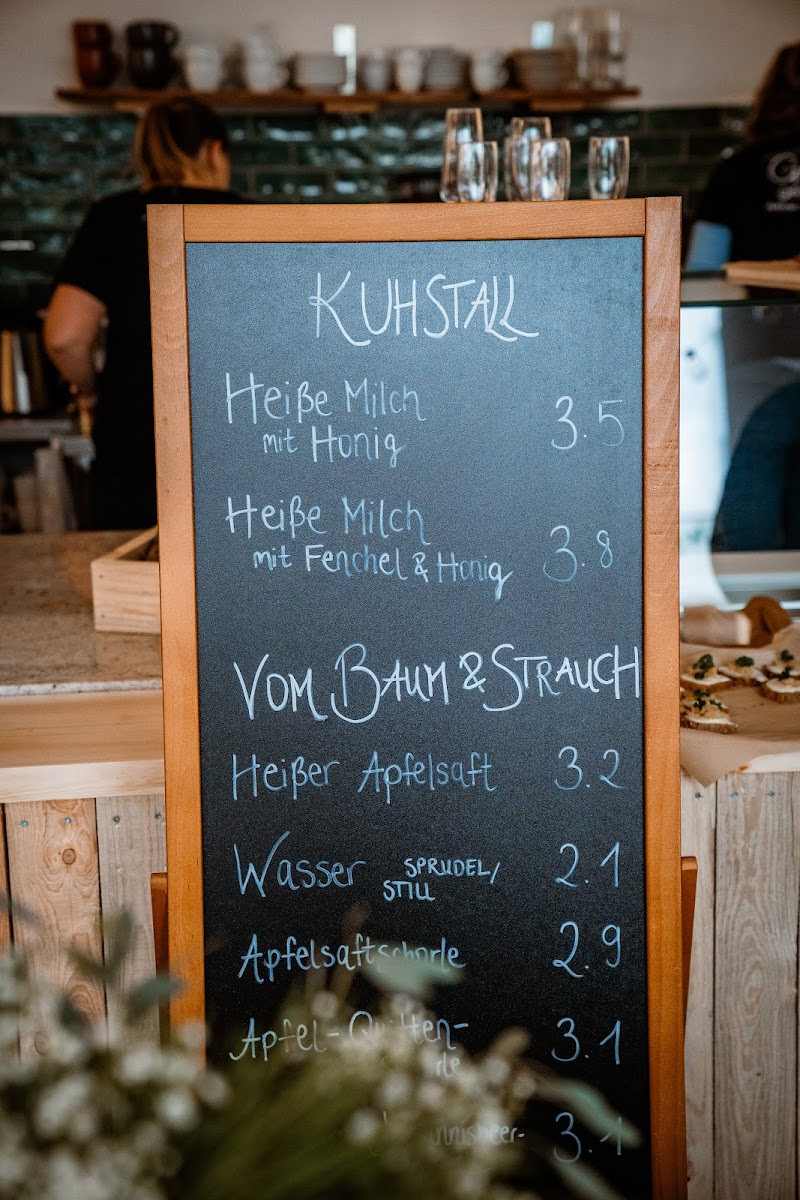 KUHSTALL
Heiße Milch
mit Honig 3.5
Heiße Milch
mit Fenchel & Honig 3.8
VOM BAUM & STRAUCH
Heißer Apfelsaft 3.2
Wasser SPRUDEL/ 2.1
STILL
Apfelsaftschorle 2.9
Apfel-Quitten- 3.1
3.1